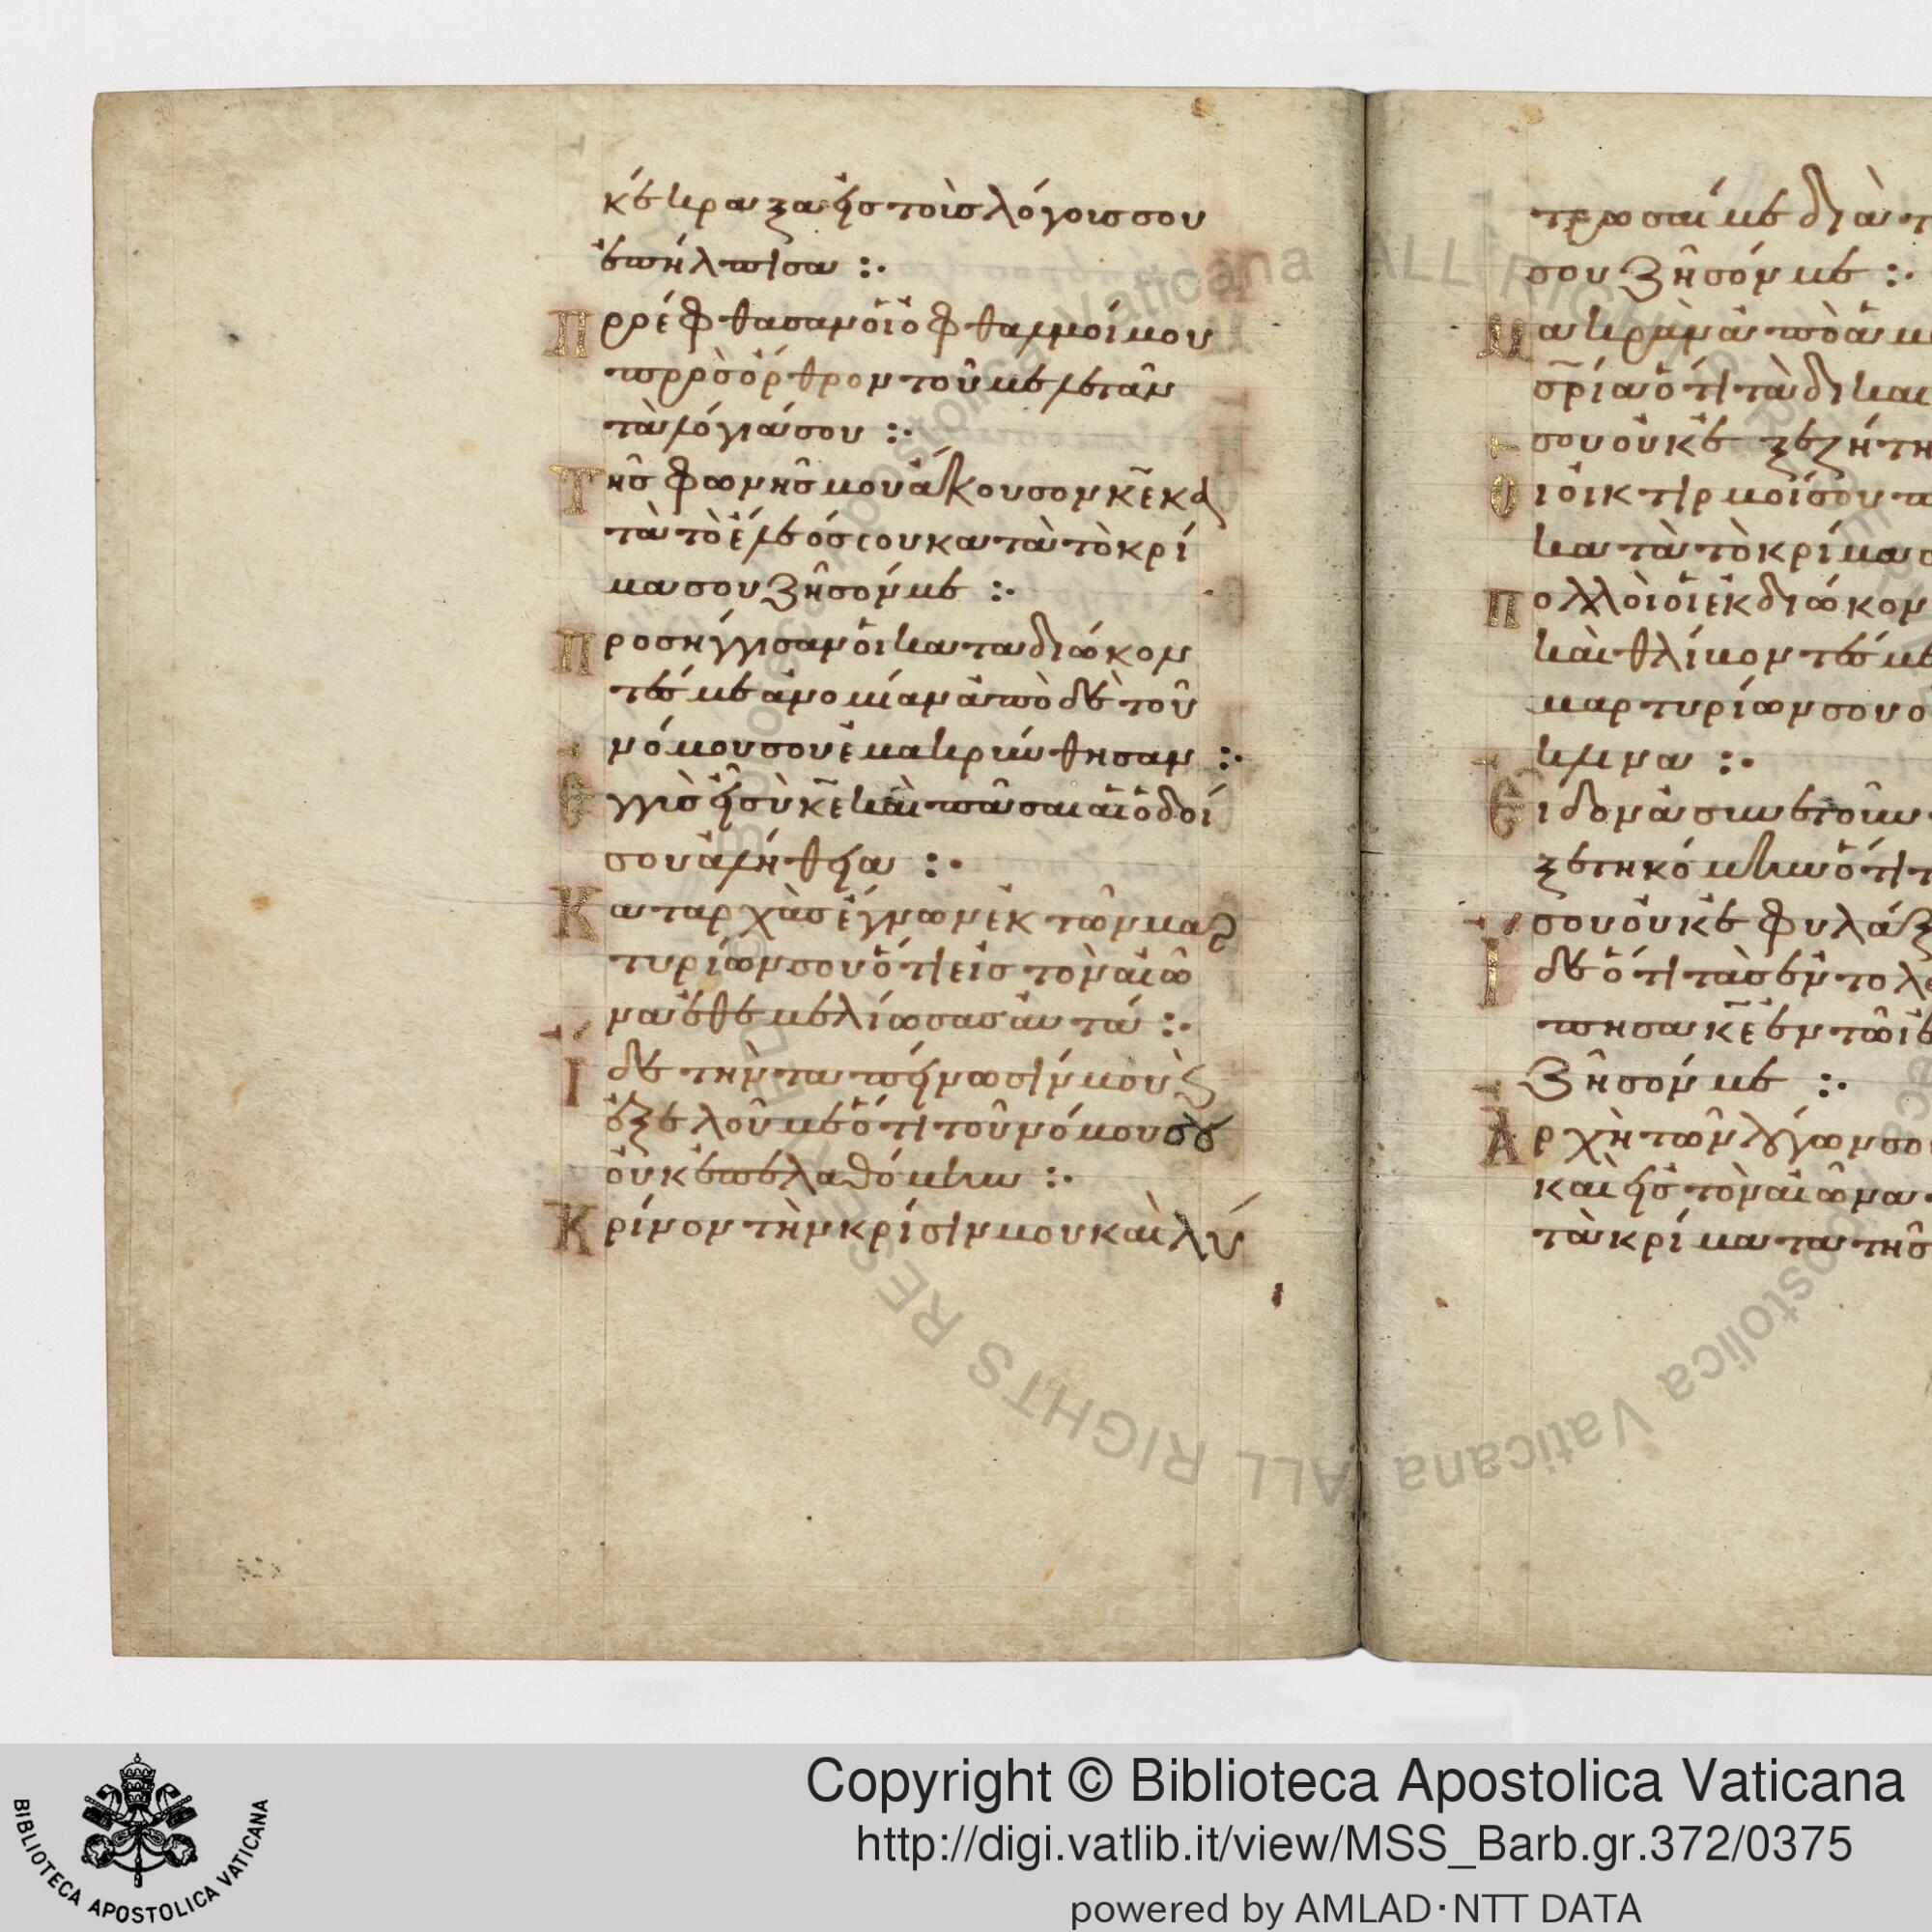 κὲ ἐκραξα εἰς τοὺς λόγοις σου
ἐπήλπισα :·
Προέφθασαν οἱ ὀφθαλμοί μου
πρὸς ὄρθρον τοῦ μελετᾶν
τὰ λόγιά σου :·
Τῆς φωνῆς μου ἄκουσον κε κα
τὰ τὸ ἔλεός σου κατὰ τὸ κρί
μα σου ζῆσόν με :·
Προσήγγισαν οἱ καταδιώκον
τές με ἀνομίαν ἀπὸ δὲ τοῦ
νόμου σου ἐμακρύνθησαν :·
Ἐγγὺς εἶ σὺ κε καὶ πᾶσαι αἱ ὁδοί
σου ἀλήθεια :·
Καταρχὰς ἔγνων ἐκ τῶν μαρ
τυρίων σου ὅτι εἰς τὸν αἰῶ
να ἐθεμελίωσας αὐτά :·
Ἴδε τὴν ταπείνωσίν μου καὶ
ἐξελοῦ με ὅτι τοῦ νόμου σου
οὐκ ἐπελαθόμην :·
Κρίνον τὴν κρίσιν μου καὶ λύ
τρωσαί με διὰ τ
σου ζῆσόν με :·
Μακρὰν ἀπὸ ἁμ
σρία ὅτι τὰ δικαι
σου οὐκ ἐξεζήτη
Οἱ οἰκτιρμοί σου π
κατὰ τὸ κρίμα σ
Πολλοὶ οἱ ἐκδιώκον
καὶ θλίβοντές με
μαρτυρίων σου ο
κλινα :·
Εἶδον ἀσυνετοῦν
ξετηκόμην ὅτι τ
σου οὐκ ἐφυλάξ
Ἴδε ὅτι τὰς ἐντολ
πησα κε ἐν τῷ ἐ
ζῆσόν με :·
Ἀρχὴ τῶν λόγων σο
καὶ εἰς τὸν αἰῶνα
τὰ κρίματα τῆς
Copyright © Biblioteca Apostolica Vaticana
http://digi.vatlib.it/view/MSS_Barb.gr.372/0375
powered by AMLAD·NTT DATA
BIBLIOTECA APOSTOLICA VATICANA